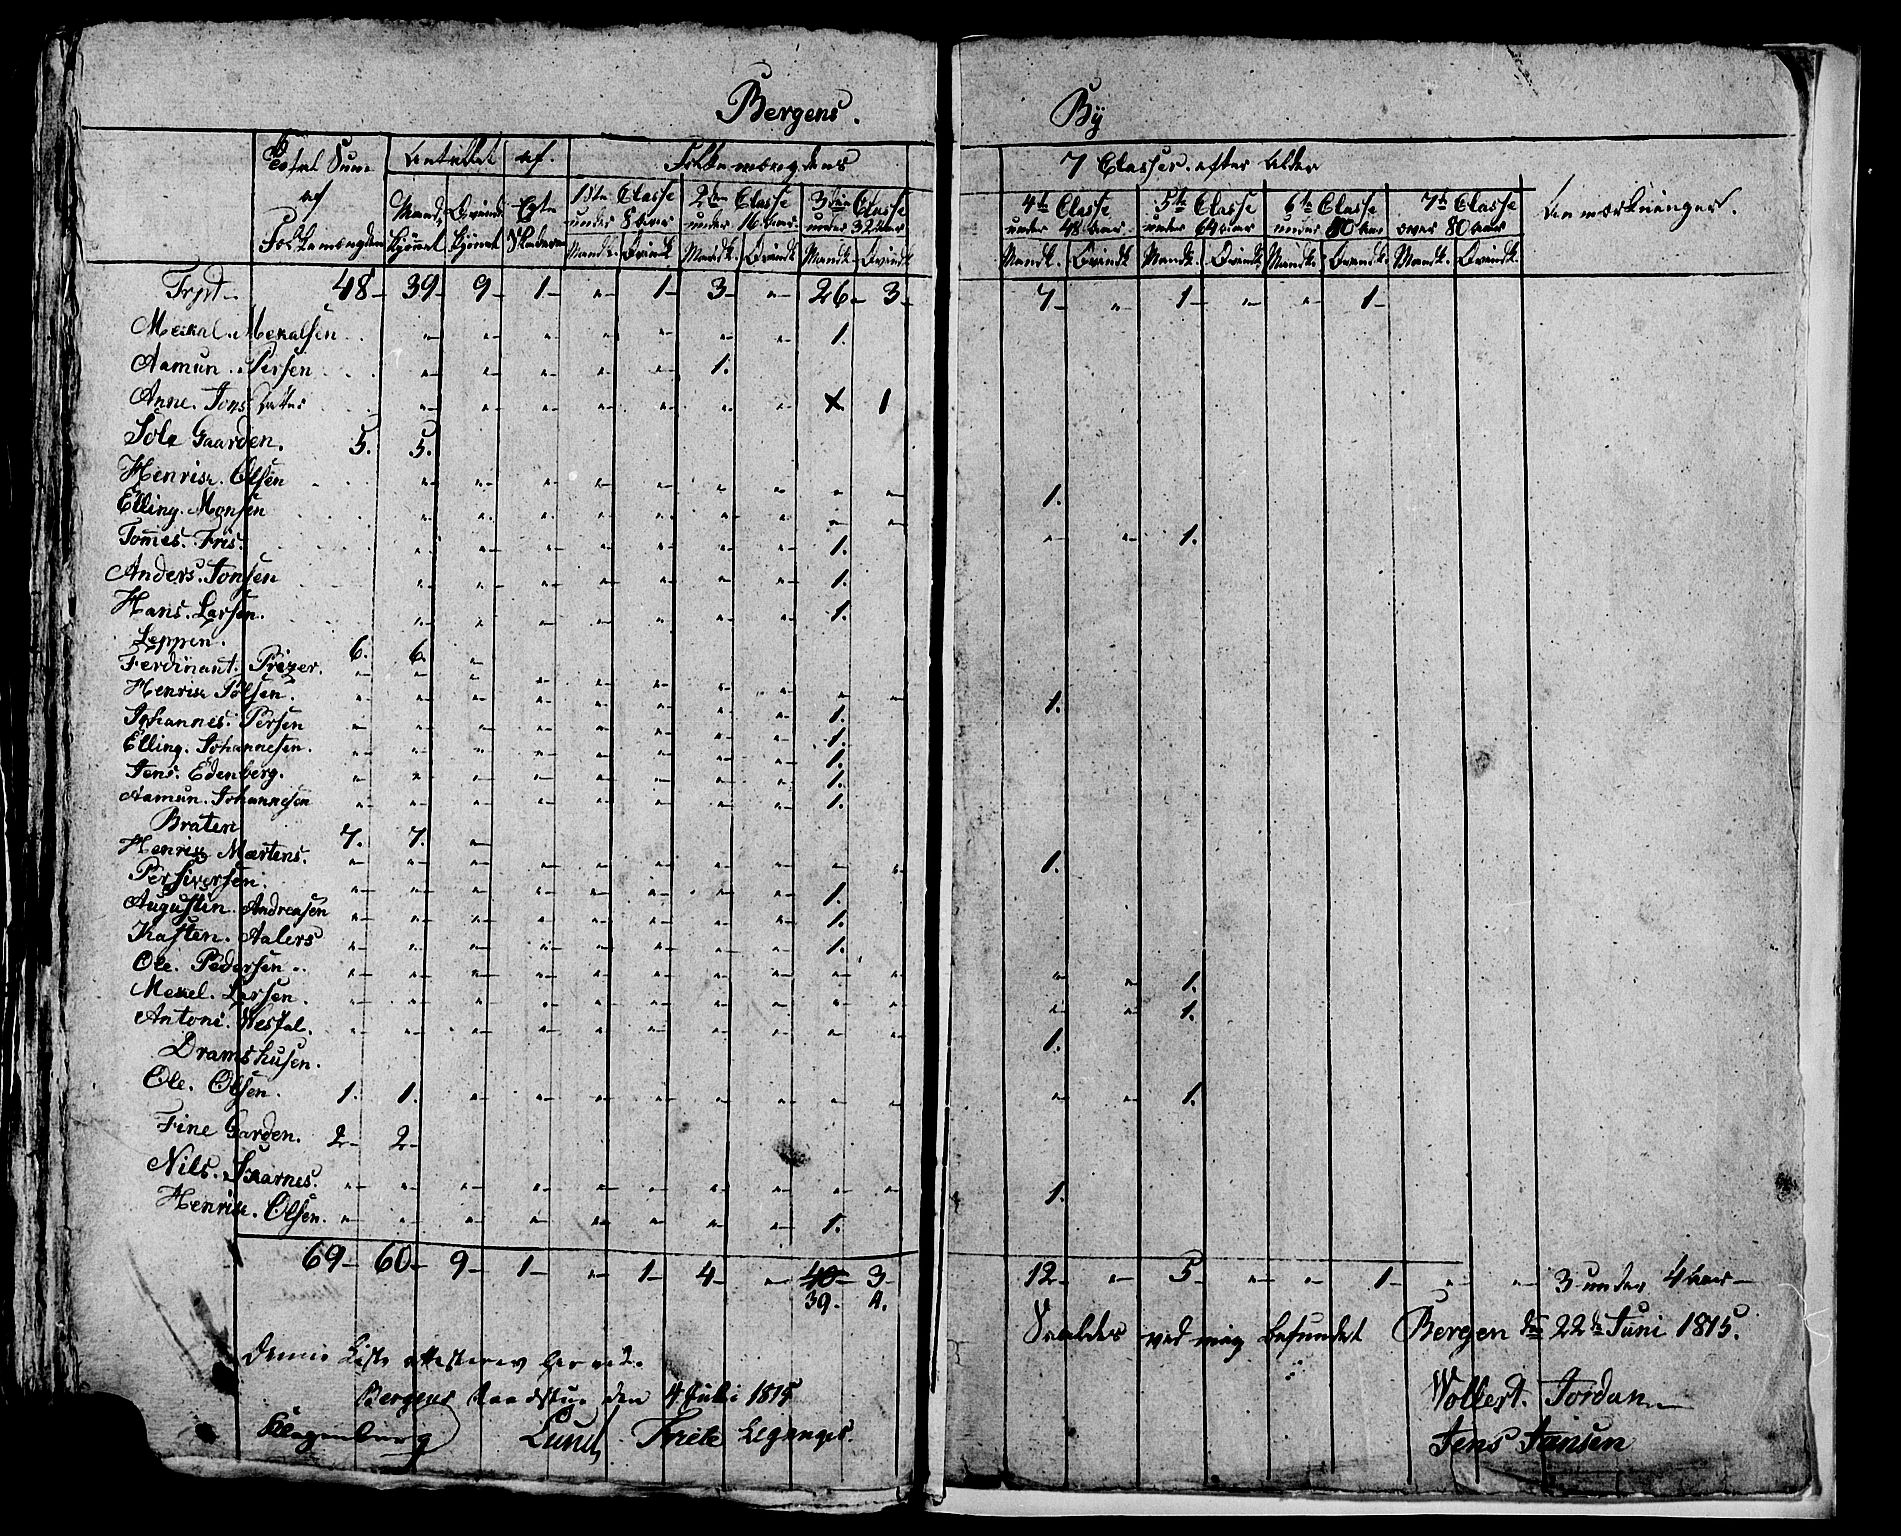 Bergens. By
Total Sum af Folkemængden | Antallet af | Folkemængdens 7 Classer efter Alder | Anmærkninger.
Mandkjønnet | Qvindkjønnet | Egte
1ste Classe under 8 Aar | 2den Classe under 16 Aar | 3die Classe under 32 Aar | 4de Classe under 48 Aar | 5te Classe under 64 Aar | 6te Classe under 80 Aar | 7de Classe over 80 Aar
Mandk. Qvindk. Mandk. Qvindk. Mandk. Qvindk. Mandk. Qvindk. Mandk. Qvindk. Mandk. Qvindk. Mandk. Qvindk.
48 - 39 - 9 - 1 - " - 1 - 3 - " - 26 - 3 - 7 - " - 1 - " - " - 1 -
Meikal. Mekalsen . . " " " " " " " 1.
Aamun. Persen . . " " " " " 1.
Anne. Jons Datter " " " " " " " 1
Sole Gaarden. 5. 5.
Henrik. Olsen " " " " " " " " " 1.
Elling. Monsen " " " " " " " " " " " 1.
Tomes. Friis. " " " " " " " 1.
Anders. Jonsen " " " " " " " 1.
Hans. Larsen. " " " " " " " 1.
Leppen. 6. 6. "
Ferdinant. Prezer. " " " " " " " " " " 1.
Henrik Polsen. " " " " " " " " 1.
Johannes. Persen " " " " " " " " 1.
Elling. Johannesen. " " " " " " " " 1.
Jens. Edenberg. " " " " " " " " 1.
Aamun. Johannesen " " " " " " " " 1.
Braten 7. 7. "
Henrik Martens. " " " " " " " " " " 1.
Per Siversen. " " " " " " " " 1.
Augustin. Andreasen " " " " " " " " 1.
Kasten. Aalers " " " " " " " " 1.
Ole. Pedersen " " " " " " " " " " " " 1.
Mekel. Larsen. " " " " " " " " " " " " 1.
Antoni. Westal. " " " " " " " " " " 1.
Dramshusen.
Ole. Olsen. 1. 1. " " " " " " " " " " 1.
Fine Garden. 2 - 2 -
Nils. Skarnes. " " " " " " " " " " 1.
Henrik. Olsen. " " " " " " " " 1.
69 - 60 - 9 - 1 - " - 1 - 4 - " - 40 - 3 - 12 - " - 5 - " - " - 1 - " - " - 3 under 4 Aar -
39. 4.
Saaledes ved mig befundet Bergen d 22de Juni 1815.
Denne Liste attesteres herved.
Bergens Raadstue den 4 Juli 1815
Wollert. Jordan
Klagenberg Lund Friele
Jens Jansen